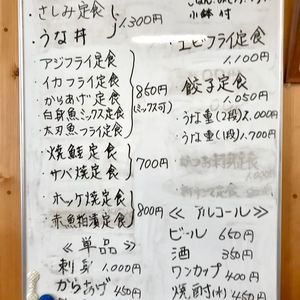 さしみ定食
・うな丼
1.300円
アジフライ定食
イカフライ定食
からあげ定食
白身魚ミックス定食
太刀魚フライ定食
850円
(ミックス可)
・焼鮭定食
・サバ焼定食
700円
・ホッケ焼定食
・赤魚粕漬定食
800円
≪単品≫
刺身 1.000円
からあげ 450円
小鉢付
・エビフライ定食
1.100円
餃子定食
1.050円
うな重(2段)
うな重(1段) 1.700円
≪アルコール≫
ビール 650円
酒 350円
ワンカップ 400円
・焼酎(水) 450円